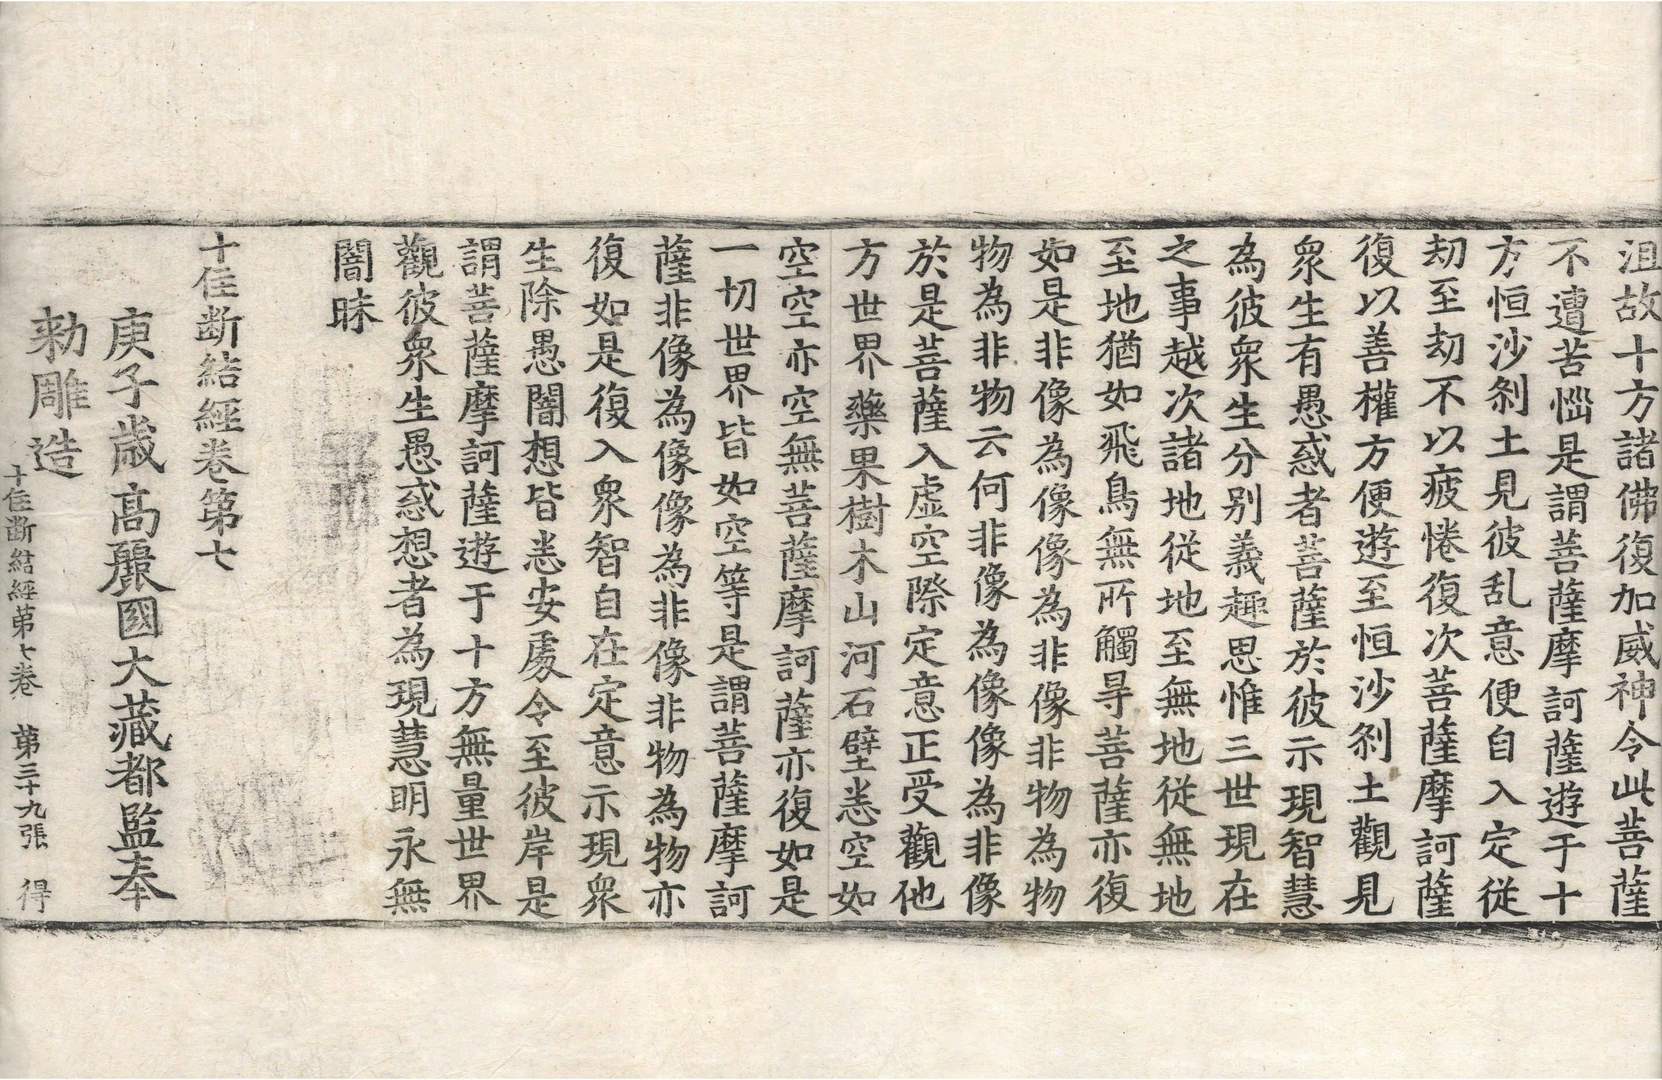 沮故十方諸佛復加威神令此菩薩
不遭苦惱是謂菩薩摩訶薩遊于十
方恒沙刹土見彼乱意便自入定從
劫至劫不以疲惓復次菩薩摩訶薩
復以善權方便遊至恒沙刹土觀見
衆生有愚惑者菩薩於彼示現智慧
為彼衆生分別義趣思惟三世現在
之事越次諸地從地至無地從無地
至地猶如飛鳥無所觸㝵菩薩亦復
如是非像為像像為非像非物為物
物為非物云何非像為像像為非像
於是菩薩入虛空際定意正受觀他
方世界藥果樹木山河石壁悉空如
空空亦空無菩薩摩訶薩亦復如是
一切世界皆如空等是謂菩薩摩訶
薩非像為像像為非像非物為物亦
復如是復入衆智自在定意示現衆
生除愚闇想皆悉安處令至彼岸是
謂菩薩摩訶薩遊于十方無量世界
觀彼衆生愚惑想者為現慧明永無
闇昧
十住斷結經卷第七
庚子歳高麗國大藏都監奉
勑雕造
十住斷結經第七卷 第三十九張 得